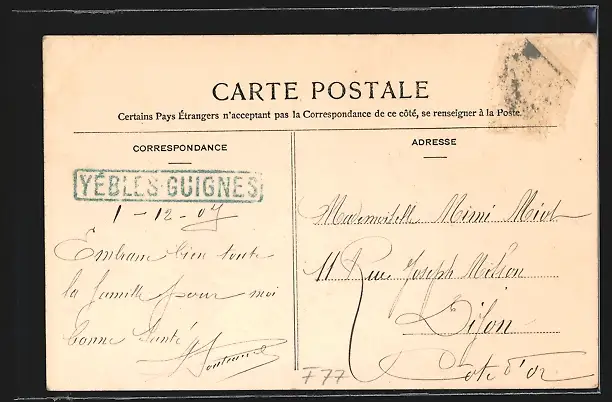 CARTE POSTALE
Certains Pays Étrangers n'acceptant pas la Correspondance de ce côté, se renseigner à la Poste.
CORRESPONDANCE
YÈBLES-GUIGNES
1-12-07
Embrasse bien toute
la famille pour moi
bonne Santé
ADRESSE
Mademoiselle Mimi
11 Rue Joseph
Dijon
Côte d'Or
F77